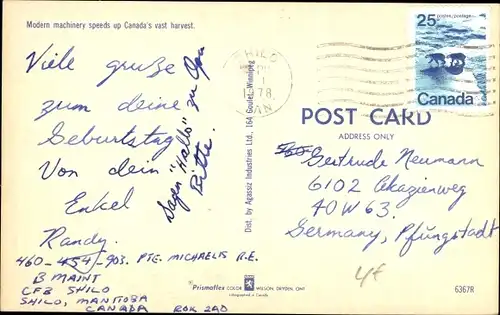 Modern machinery speeds up Canada's vast harvest.
Viele gruße
zum deine
Geburtstag
Von dein
Enkel
Randy.
Sagen "Hallo" zu Opa
Bitte.
460-454-903. PTE. MICHAELIS R.E.
B MAINT
CFB SHILO
SHILO, MANITOBA
CANADA R0K 2A0
Dist. by Agassiz Industries Ltd., 164 Goulet-Winnipeg
SHILO
1978
MAN
25
postes/postage
Canada
POST CARD
ADDRESS ONLY
Gertrude Neumann
6102 Akazienweg
40W63.
Germany, Pfüngstadt
4f
Prismaflex COLOR WILSON, DRYDEN, ONT
Lithographed in Canada
6367R